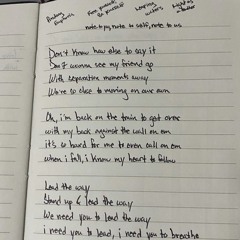 Random Free yourself Weeping Light as
Be yourself willows a feather
note to pay, note to self, note to us
Don't know how else to say it
Don't wanna see my friend go
With separation moments away
We're so close to moving on our own
Oh, i'm back on the train to get over
with my back against the wall on em
it's so hard for me to even call on em
when i fall, i know my heart to follow
Lead the way
Stand up & lead the way
We need you to lead the way
i need you to lead, i need you to breathe